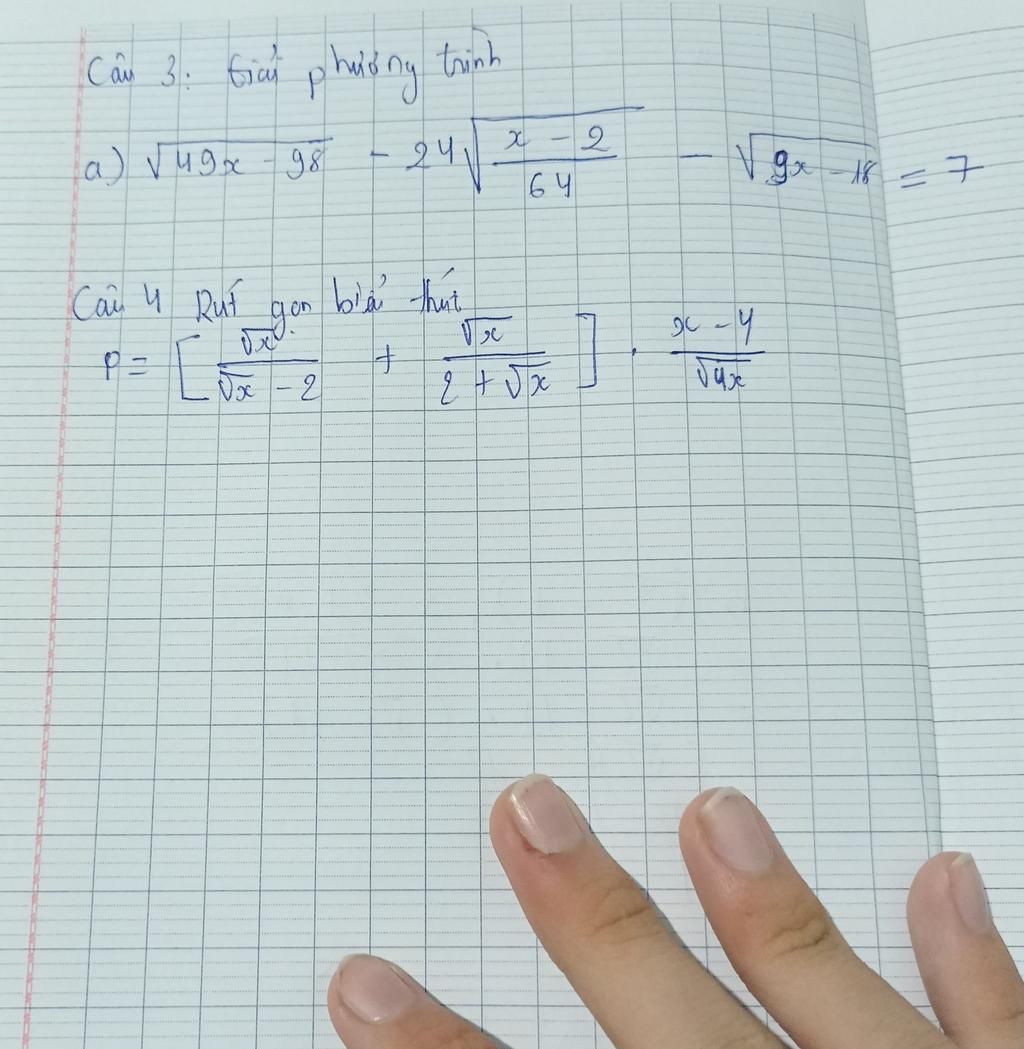 Câu 3: Giải phương trình
a) √(49x - 98) - 24√((x - 2)/64) - √(9x - 18) = 7
Câu 4 Rút gọn biể thức
P = [√x/(√x - 2) + √x/(2 + √x)] . (x - 4)/√(4x)